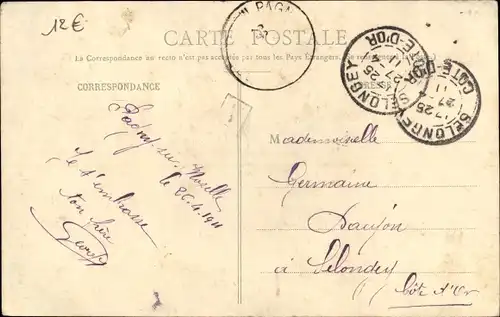 12€
PAGN
CARTE POSTALE
La Correspondance au recto n'est pas acceptée par tous les Pays Étrangers.
CORRESPONDANCE
SELONGEY
17-25
27-4
11
CÔTE-D'OR
SELONGEY
17-25
27
11
CÔTE-D'OR
Pagny-sur-Moselle
le 26.4.1911
Je t'embrasse
ton frère
Mademoiselle
Germaine
Daujon
à Selongey
Côte d'Or